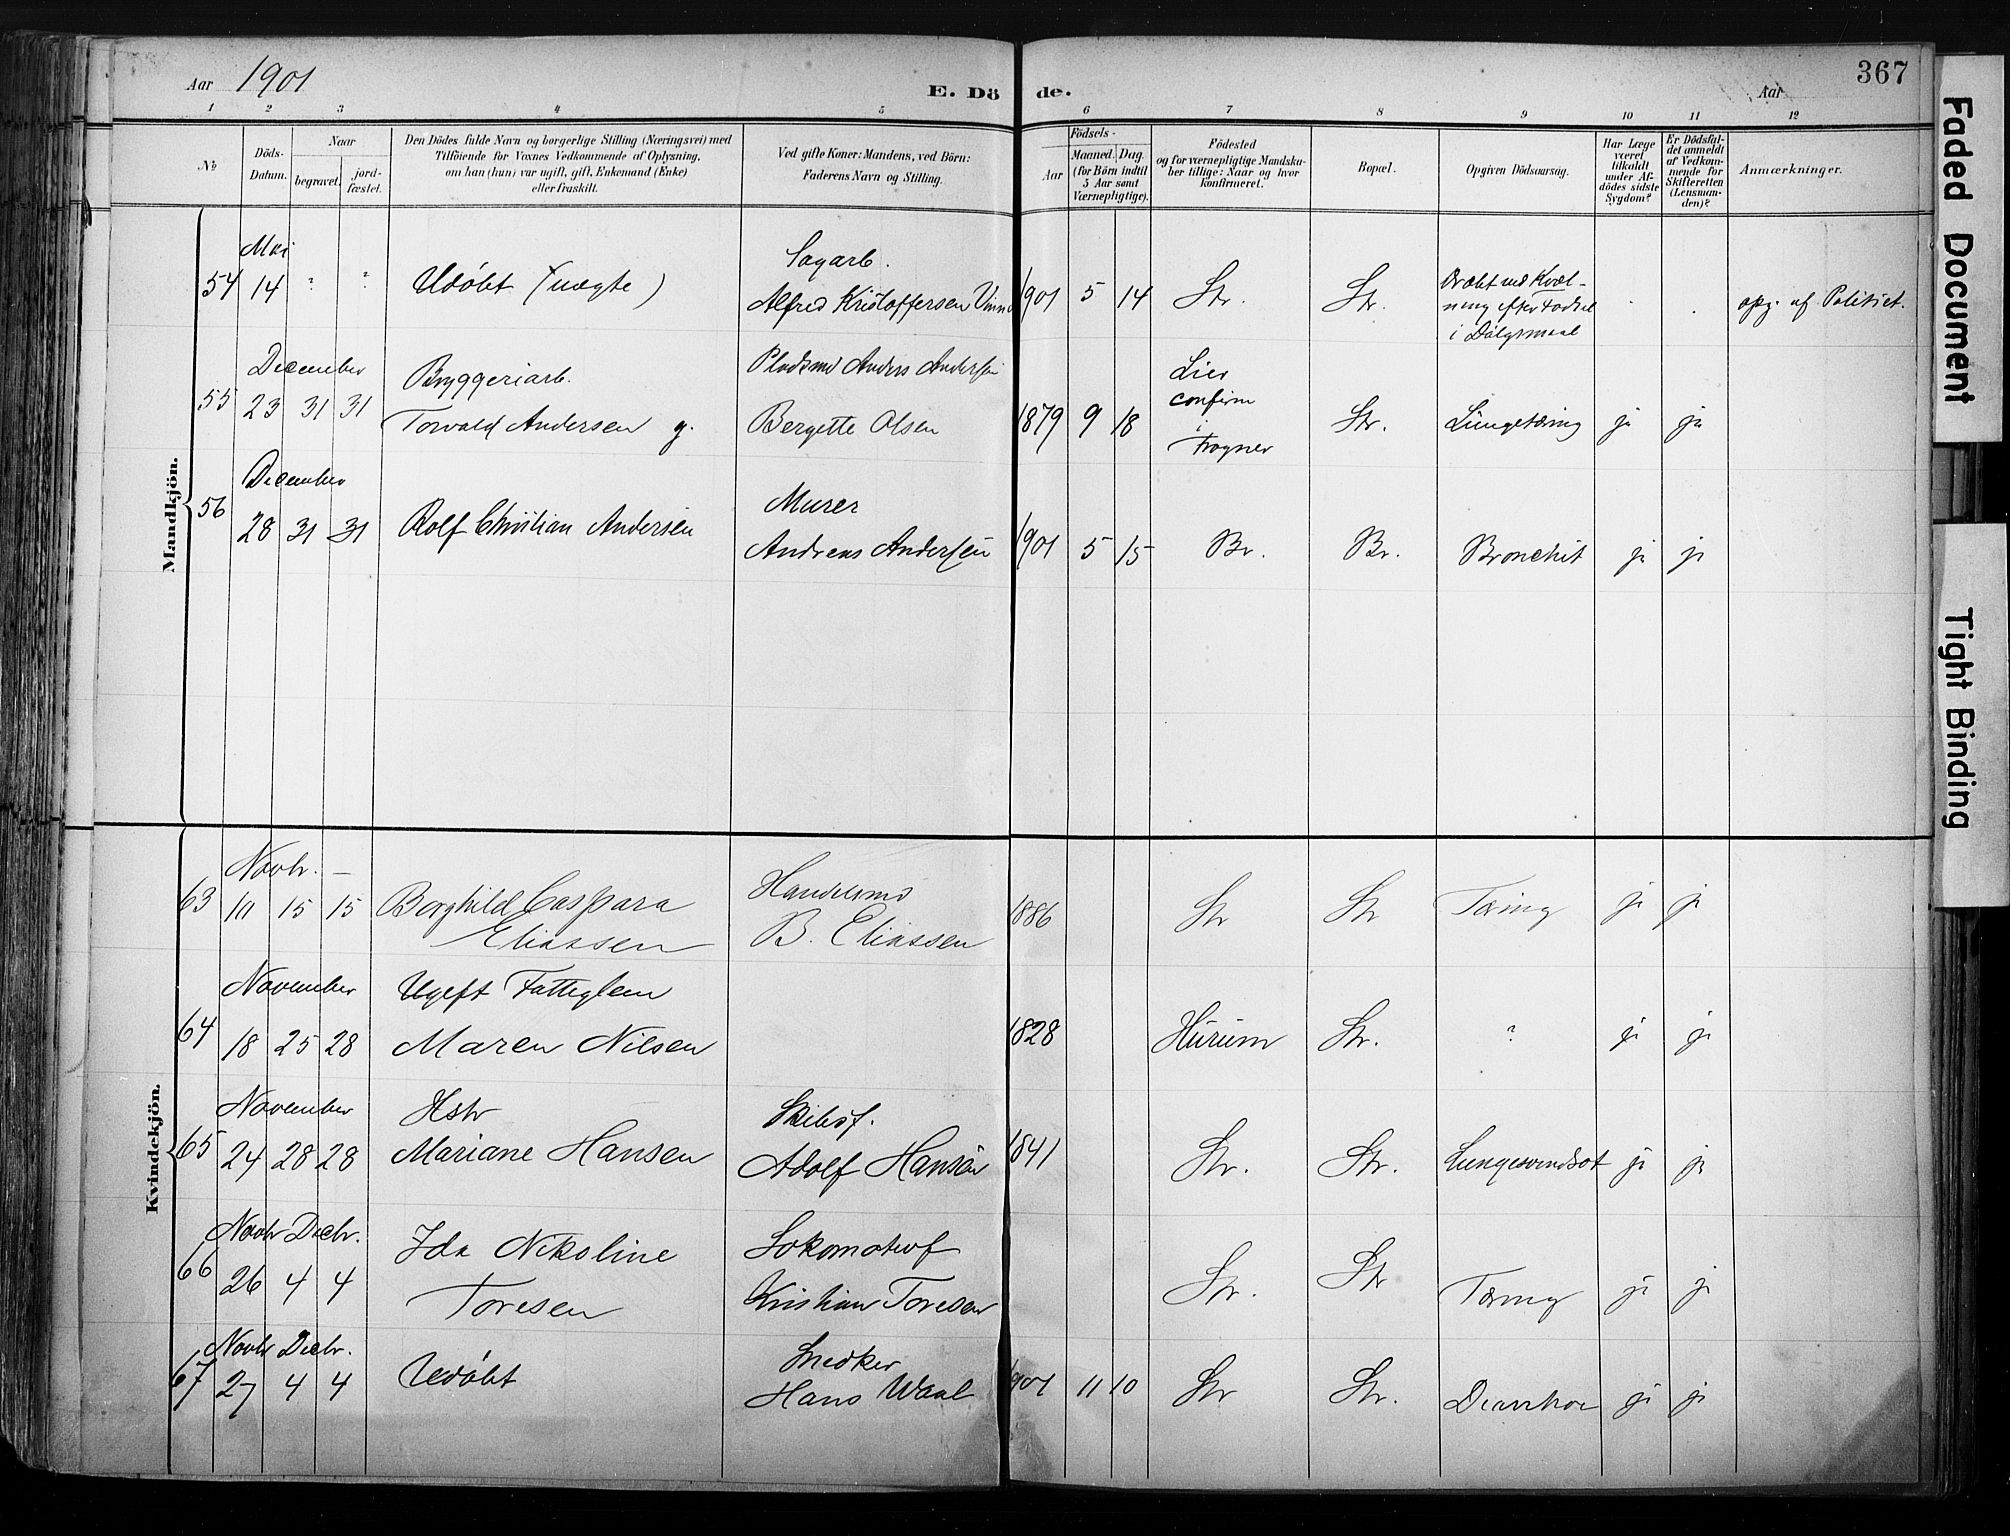 Aar 1901
E. Dö de.
Aar
367
1 2 3 4 5 6 7 8 9 10 11 12
№
Döds-
Datum.
Naar
begravet.
jord-
fæstet.
Den Dödes fulde Navn og borgerlige Stilling (Næringsvei) med
Tilföiende for Voxnes Vedkommende af Oplysning,
om han (hun) var ugift, gift, Enkemand (Enke)
eller fraskilt.
Ved gifte Koner: Mandens, ved Börn:
Faderens Navn og Stilling.
Födsels-
Aar
Maaned. Dag.
(for Börn indtil
5 Aar samt
Værnepligtige).
Födested
og for værnepligtige Mandska-
ber tillige: Naar og hvor
konfirmeret.
Bopæl.
Opgiven Dödsaarsag.
Har Læge
været
tilkaldt
under Af-
dödes sidste
Sygdom?
Er Dödsfal-
det anmeldt
af Vedkom-
mende for
Skifteretten
(Lensman-
den)?
Anmærkninger.
Mandkjön.
Mai
Sagarb.
54 14 ? ? Udøbt (uægte) Alfred Kristoffersen 1901 5 14 Str. Str.
Dræbt ved Kvæl-
ning efter Fødsel
i Dølgsmaal
opg. af Politiet.
December
Bryggeriarb.
Pladsmd Anders Andersen
Lier
confirm
i
Frogner
55 23 31 31 Torvald Andersen g. Bergette Olsen 1879 9 18 Str. Lungetæring ja ja
December
Murer
56 28 31 31 Rolf Christian Andersen Andreas Andersen 1901 5 15 Br. Br. Bronchit ja ja
Kvindekjön.
Novbr. —
Handelsmd
63 10 15 15 Borghild Caspara
Eliassen
B. Eliassen 1886 Str Str Tæring ja ja
November
Ugift Fattiglem
64 18 25 28 Maren Nilsen 1828 Hurum Str. ? ja ja
November
Hstr
Skibsf.
65 24 28 28 Mariane Hansen Adolf Hansen 1841 Str. Str. Lungesvindsot ja ja
Novbr Decbr.
66 26 4 4 Ida Nikoline
Toresen
Lokomotivf
Kristian Toresen Str. Str Tæring ja ja
Novbr Decbr.
Snedker
67 27 4 4 Udøbt Hans Waal 1901 11 10 Str Str. Diarrhoe ja ja
Faded Document
Tight Binding